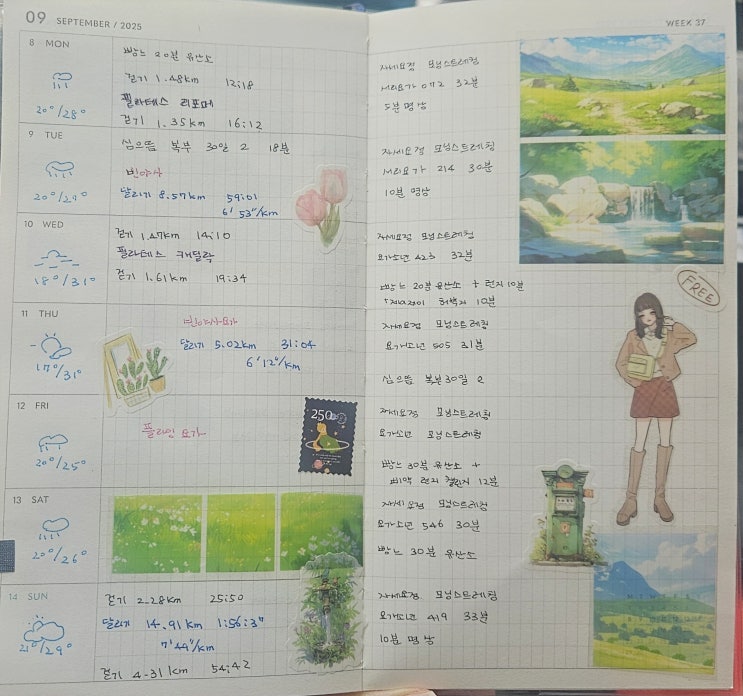 09 SEPTEMBER / 2025
WEEK 37
8 MON
20°/28°
빵느 20분 유산소
걷기 1.48km 12:18
필라테스 리포머
걷기 1.35km 16:12
자세요정 모닝스트레칭
서리요가 072 32분
5분 명상
9 TUE
20°/29°
심으뜸 복부 30일 2 18분
빈야사
달리기 8.57km 59:01
6'53"/km
자세요정 모닝스트레칭
서리요가 214 30분
10분 명상
10 WED
18°/31°
걷기 1.47km 14:10
필라테스 캐딜락
걷기 1.61km 19:34
자세요정 모닝스트레칭
요가소년 423 32분
11 THU
17°/31°
빈야사요가
달리기 5.02km 31:04
6'12"/km
빵느 20분 유산소 + 런지 10분
허벅지 10분
자세요정 모닝스트레칭
요가소년 505 31분
심으뜸 복부30일 2
FREE
12 FRI
20°/25°
플라잉 요가
250
자세요정 모닝스트레칭
요가소년 모닝스트레칭
빵느 30분 유산소 +
런지 챌린지 12분
13 SAT
20°/26°
자세요정 모닝스트레칭
요가소년 546 30분
빵느 30분 유산소
14 SUN
21°/29°
걷기 2.28km 25:50
달리기 14.91km 1:56:3"
7'49"/km
걷기 4.31km 54:42
자세요정 모닝스트레칭
요가소년 419 33분
10분 명상